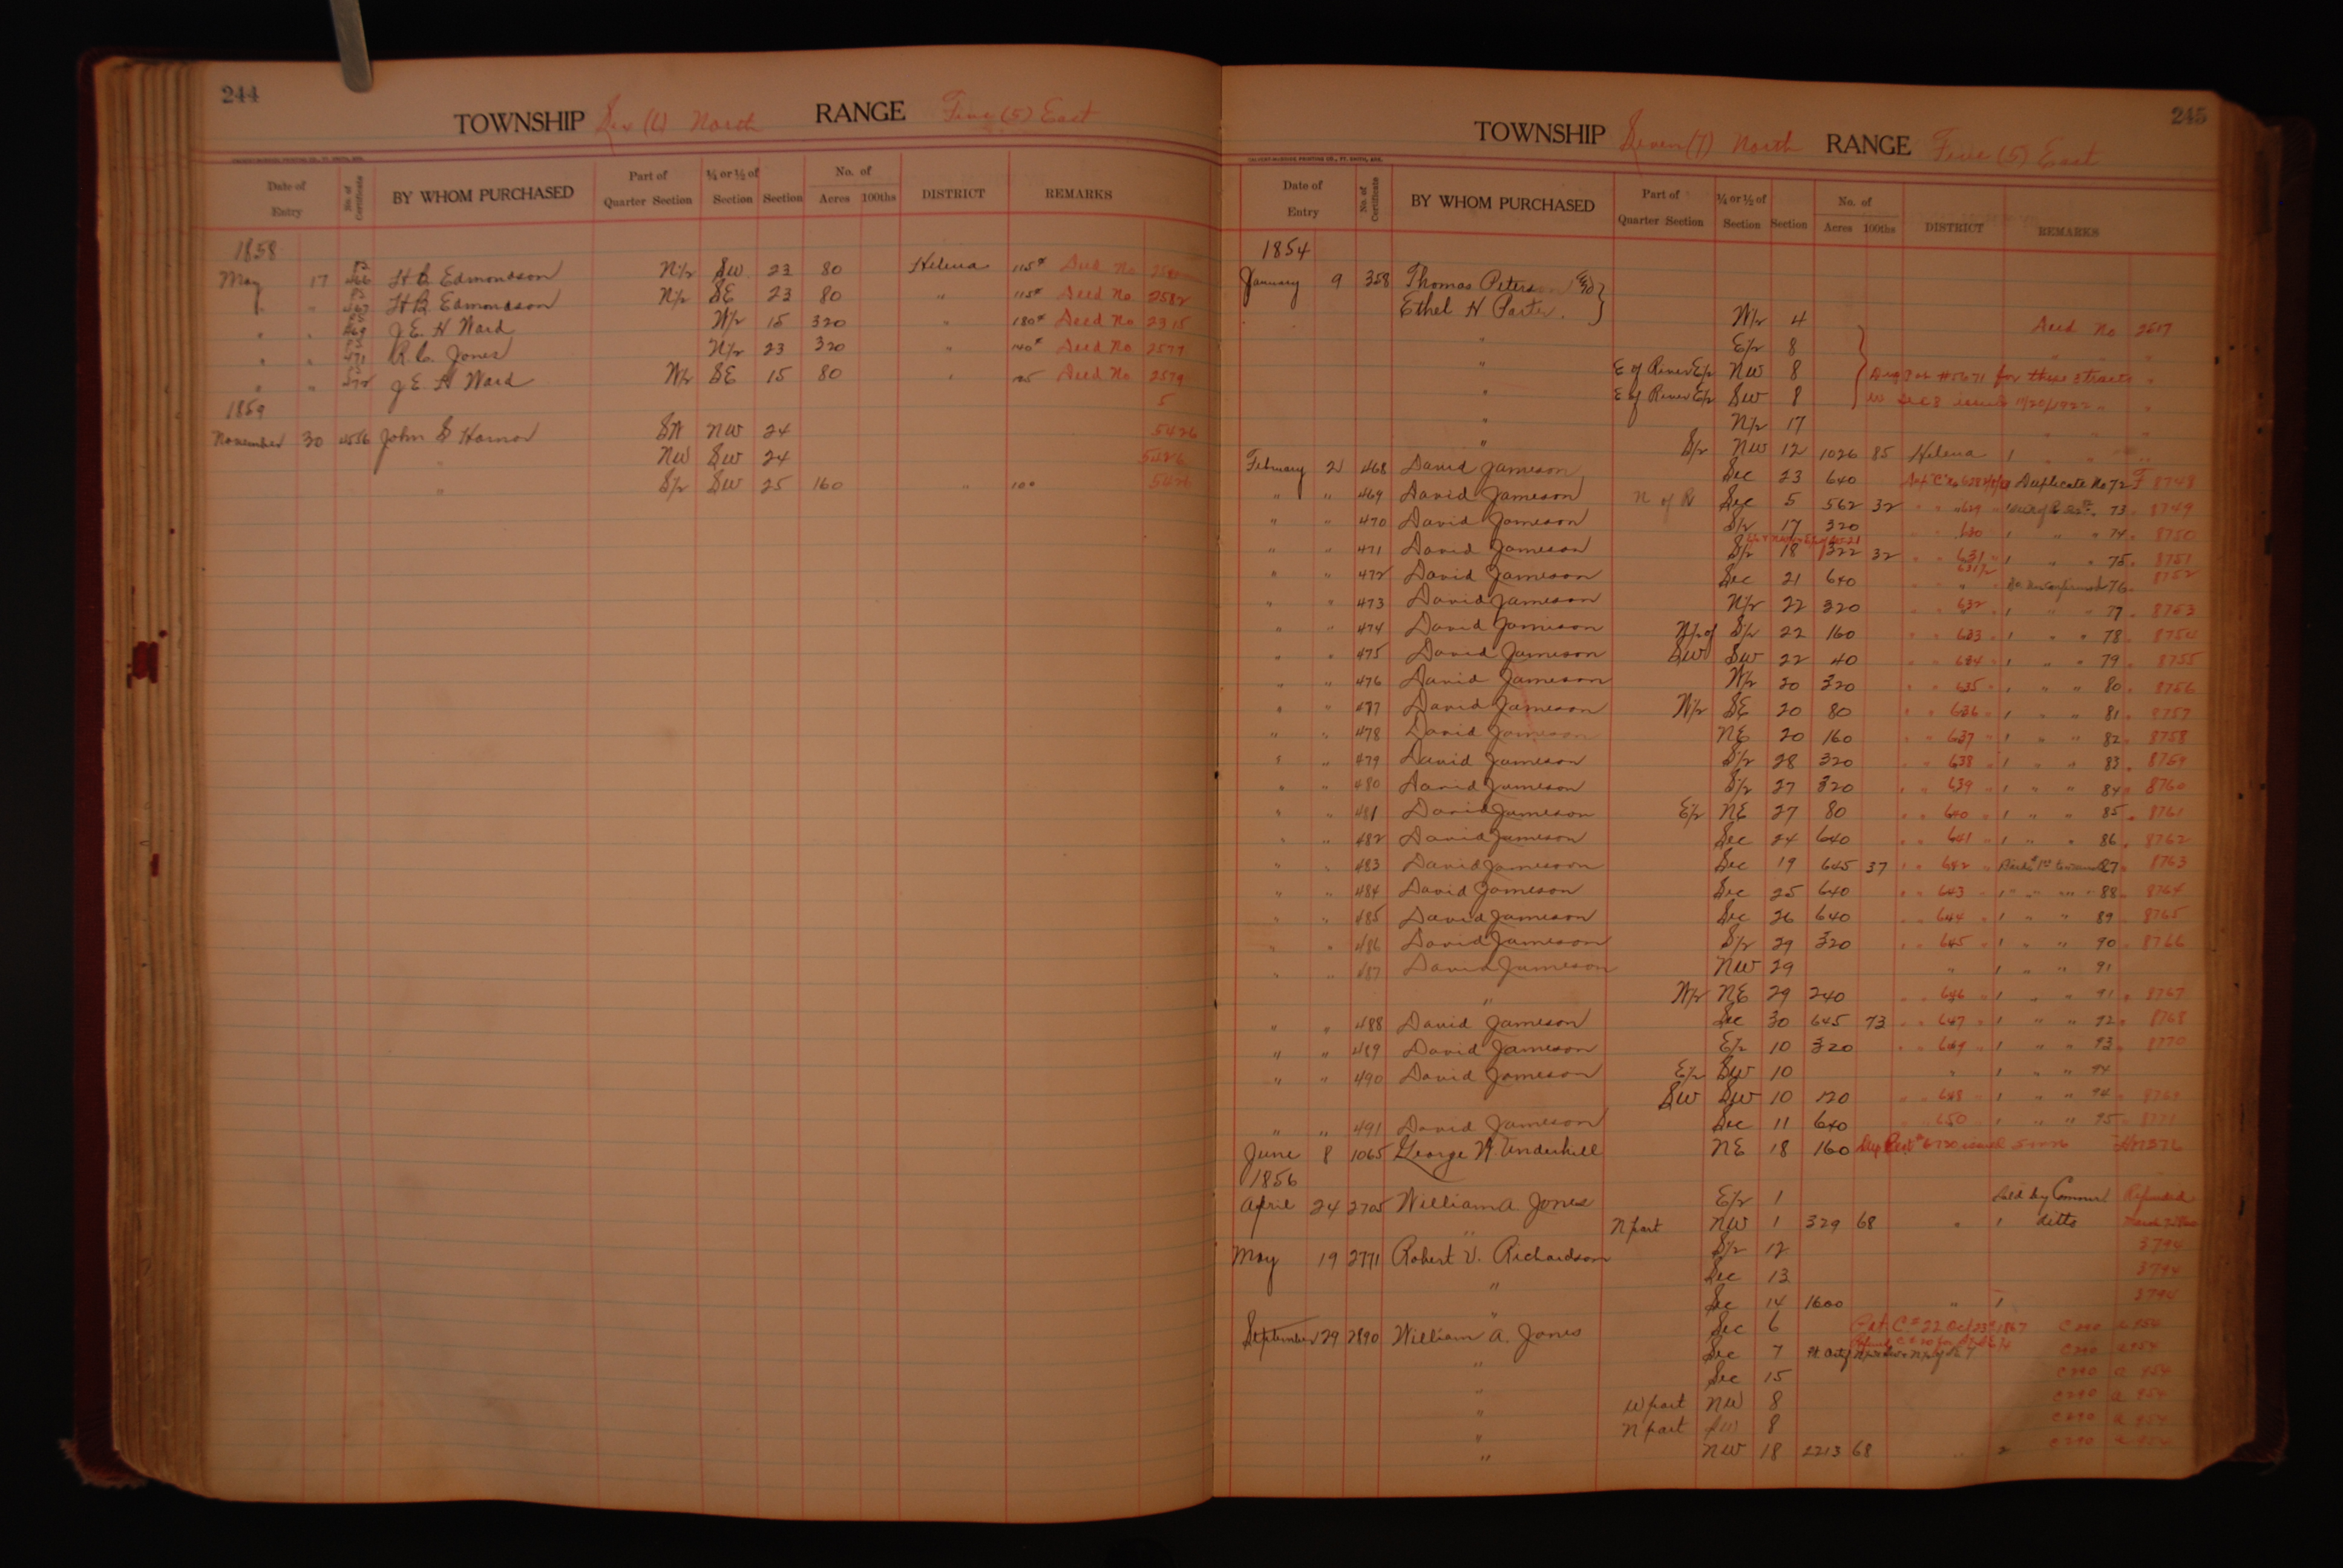 244
TOWNSHIP Six (6) North RANGE Five (5) East
Date of Entry No. of Certificate BY WHOM PURCHASED Part of Quarter Section ¼ or ½ of Section Section No. of Acres 100ths DISTRICT REMARKS
1858
May 17 H B Edmondson N/2 SW 23 80 Helena 115 Deed No
" " H B Edmondson N/2 SE 23 80 " 115 Deed No 2582
" " J E H Ward W/2 15 320 " 180 Deed No 2315
" " R C. Jones N/2 23 320 " 140 Deed No 2577
" " J E H Ward W/2 SE 15 80 " Deed No 2579
1859 5
November 30 John S Hornor NW 24 5426
" NW SW 24 5426
" S/2 SW 25 160 " 100 5426
245
TOWNSHIP Seven (7) North RANGE Five (5) East
Date of Entry No. of Certificate BY WHOM PURCHASED Part of Quarter Section ¼ or ½ of Section Section No. of Acres 100ths DISTRICT REMARKS
1854
January 9 358 Thomas Peterson
Ethel H Porter. W/2 4 Deed No 2617
" E/2 8 " " "
" E of River E/2 NW 8 for these 3 tracts "
" E of River E/2 SW 8 in Sec 8 issued 11/20/1922 " "
" N/2 17 " " "
" S/2 NW 12 1026 85 Helena 1 " " "
February 21 468 David Jameson Sec 23 640 Duplicate No 72 F 8748
" " 469 David Jameson N of R Sec 5 562 32 " " 629 73 " 8749
" " 470 David Jameson S/2 17 320 630 1 " " 74 " 8750
" " 471 David Jameson S/2 18 322 32 " " 631 1 " " 75 " 8751
" " 472 David Jameson Sec 21 640 " " 631 1/2 76 " 8752
" " 473 David Jameson N/2 22 320 " " 632 " 1 " " 77 " 8753
" " 474 David Jameson N/2 of S/2 22 160 " " 633 " 1 " " 78 " 8754
" " 475 David Jameson SW SW 22 40 " " 634 " 1 " " 79 " 8755
" " 476 David Jameson W/2 20 320 " " 635 " 1 " " 80 " 8756
" " 477 David Jameson W/2 SE 20 80 " " 636 " 1 " " 81 " 8757
" " 478 David Jameson NE 20 160 " " 637 " 1 " " 82 " 8758
" " 479 David Jameson S/2 28 320 " " 638 " 1 " " 83 " 8759
" " 480 David Jameson S/2 27 320 " " 639 " 1 " " 84 " 8760
" " 481 David Jameson E/2 NE 27 80 " " 640 " 1 " " 85 " 8761
" " 482 David Jameson Sec 24 640 " " 641 " 1 " " 86 " 8762
" " 483 David Jameson Sec 19 645 37 " " 642 " 87 " 8763
" " 484 David Jameson Sec 25 640 " " 643 " 1 " " 88 " 8764
" " 485 David Jameson Sec 26 640 " " 644 " 1 " " 89 " 8765
" " 486 David Jameson S/2 29 320 " " 645 " 1 " " 90 " 8766
" " 487 David Jameson NW 29 " 1 " " 91
" W/2 NE 29 240 " " 646 " 1 " " 91 " 8767
" " 488 David Jameson Sec 30 645 73 " " 647 " 1 " " 92 " 8768
" " 489 David Jameson E/2 10 320 " " 649 " 1 " " 93 " 8770
" " 490 David Jameson E/2 SW 10 " 1 " " 94
SW SW 10 120 " " 648 " 1 " " 94 " 8769
" " 491 David Jameson Sec 11 640 " " 650 " 1 " " 95 " 8771
June 8 1065 George W Underhill NE 18 160
1856
April 24 2705 William A. Jones E/2 1 Sold by Refunded
" N part NW 1 329 68 " 1 ditto
May 19 2771 Robert V. Richardson S/2 12 3794
" Sec 13 3794
" Sec 14 1600 " 1 3794
September 29 2890 William A. Jones Sec 6
" Sec 7
" Sec 15
" W part NW 8
" N part SW 8
" NW 18 2213 68 " 2